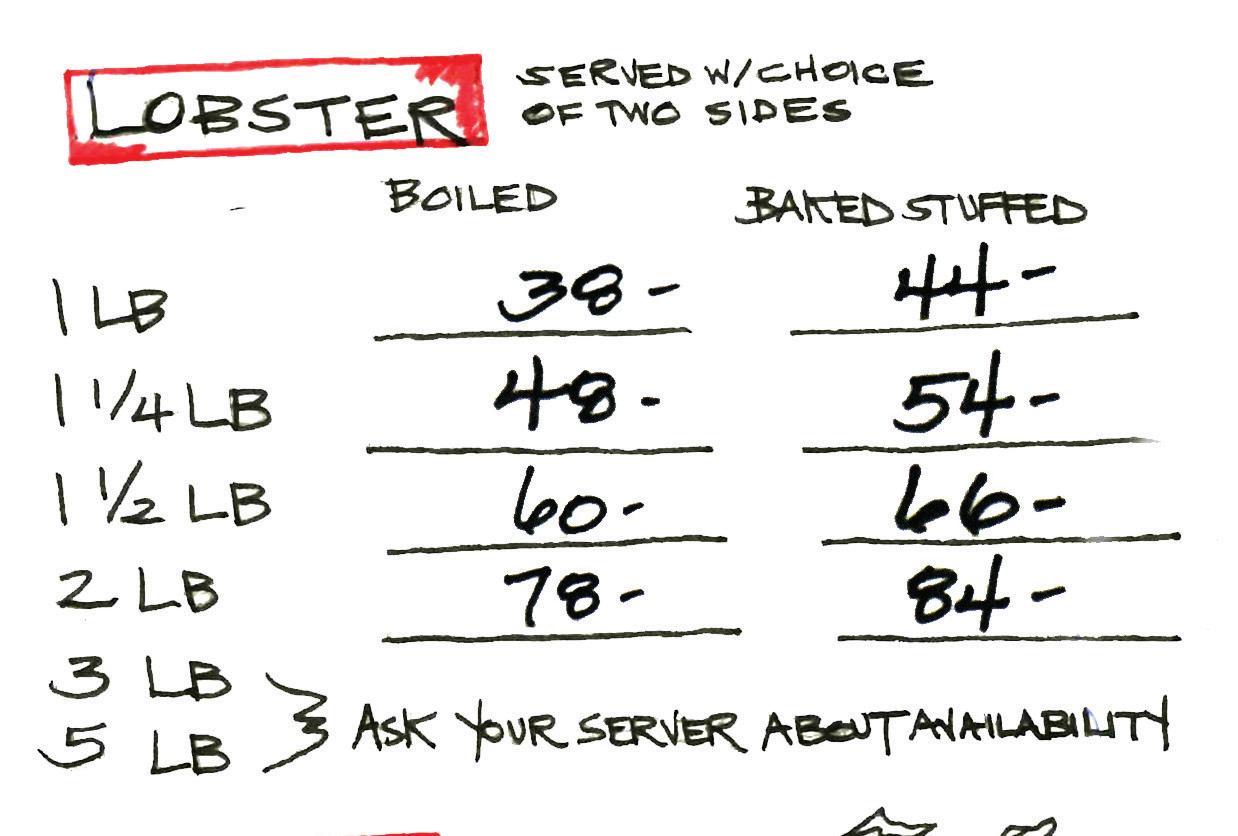 LOBSTER SERVED W/CHOICE
OF TWO SIDES
BOILED BAKED STUFFED
1 LB 38- 44-
1 1/4 LB 48- 54-
1 1/2 LB 60- 66-
2 LB 78- 84-
3 LB
5 LB } ASK YOUR SERVER ABOUT AVAILABILITY